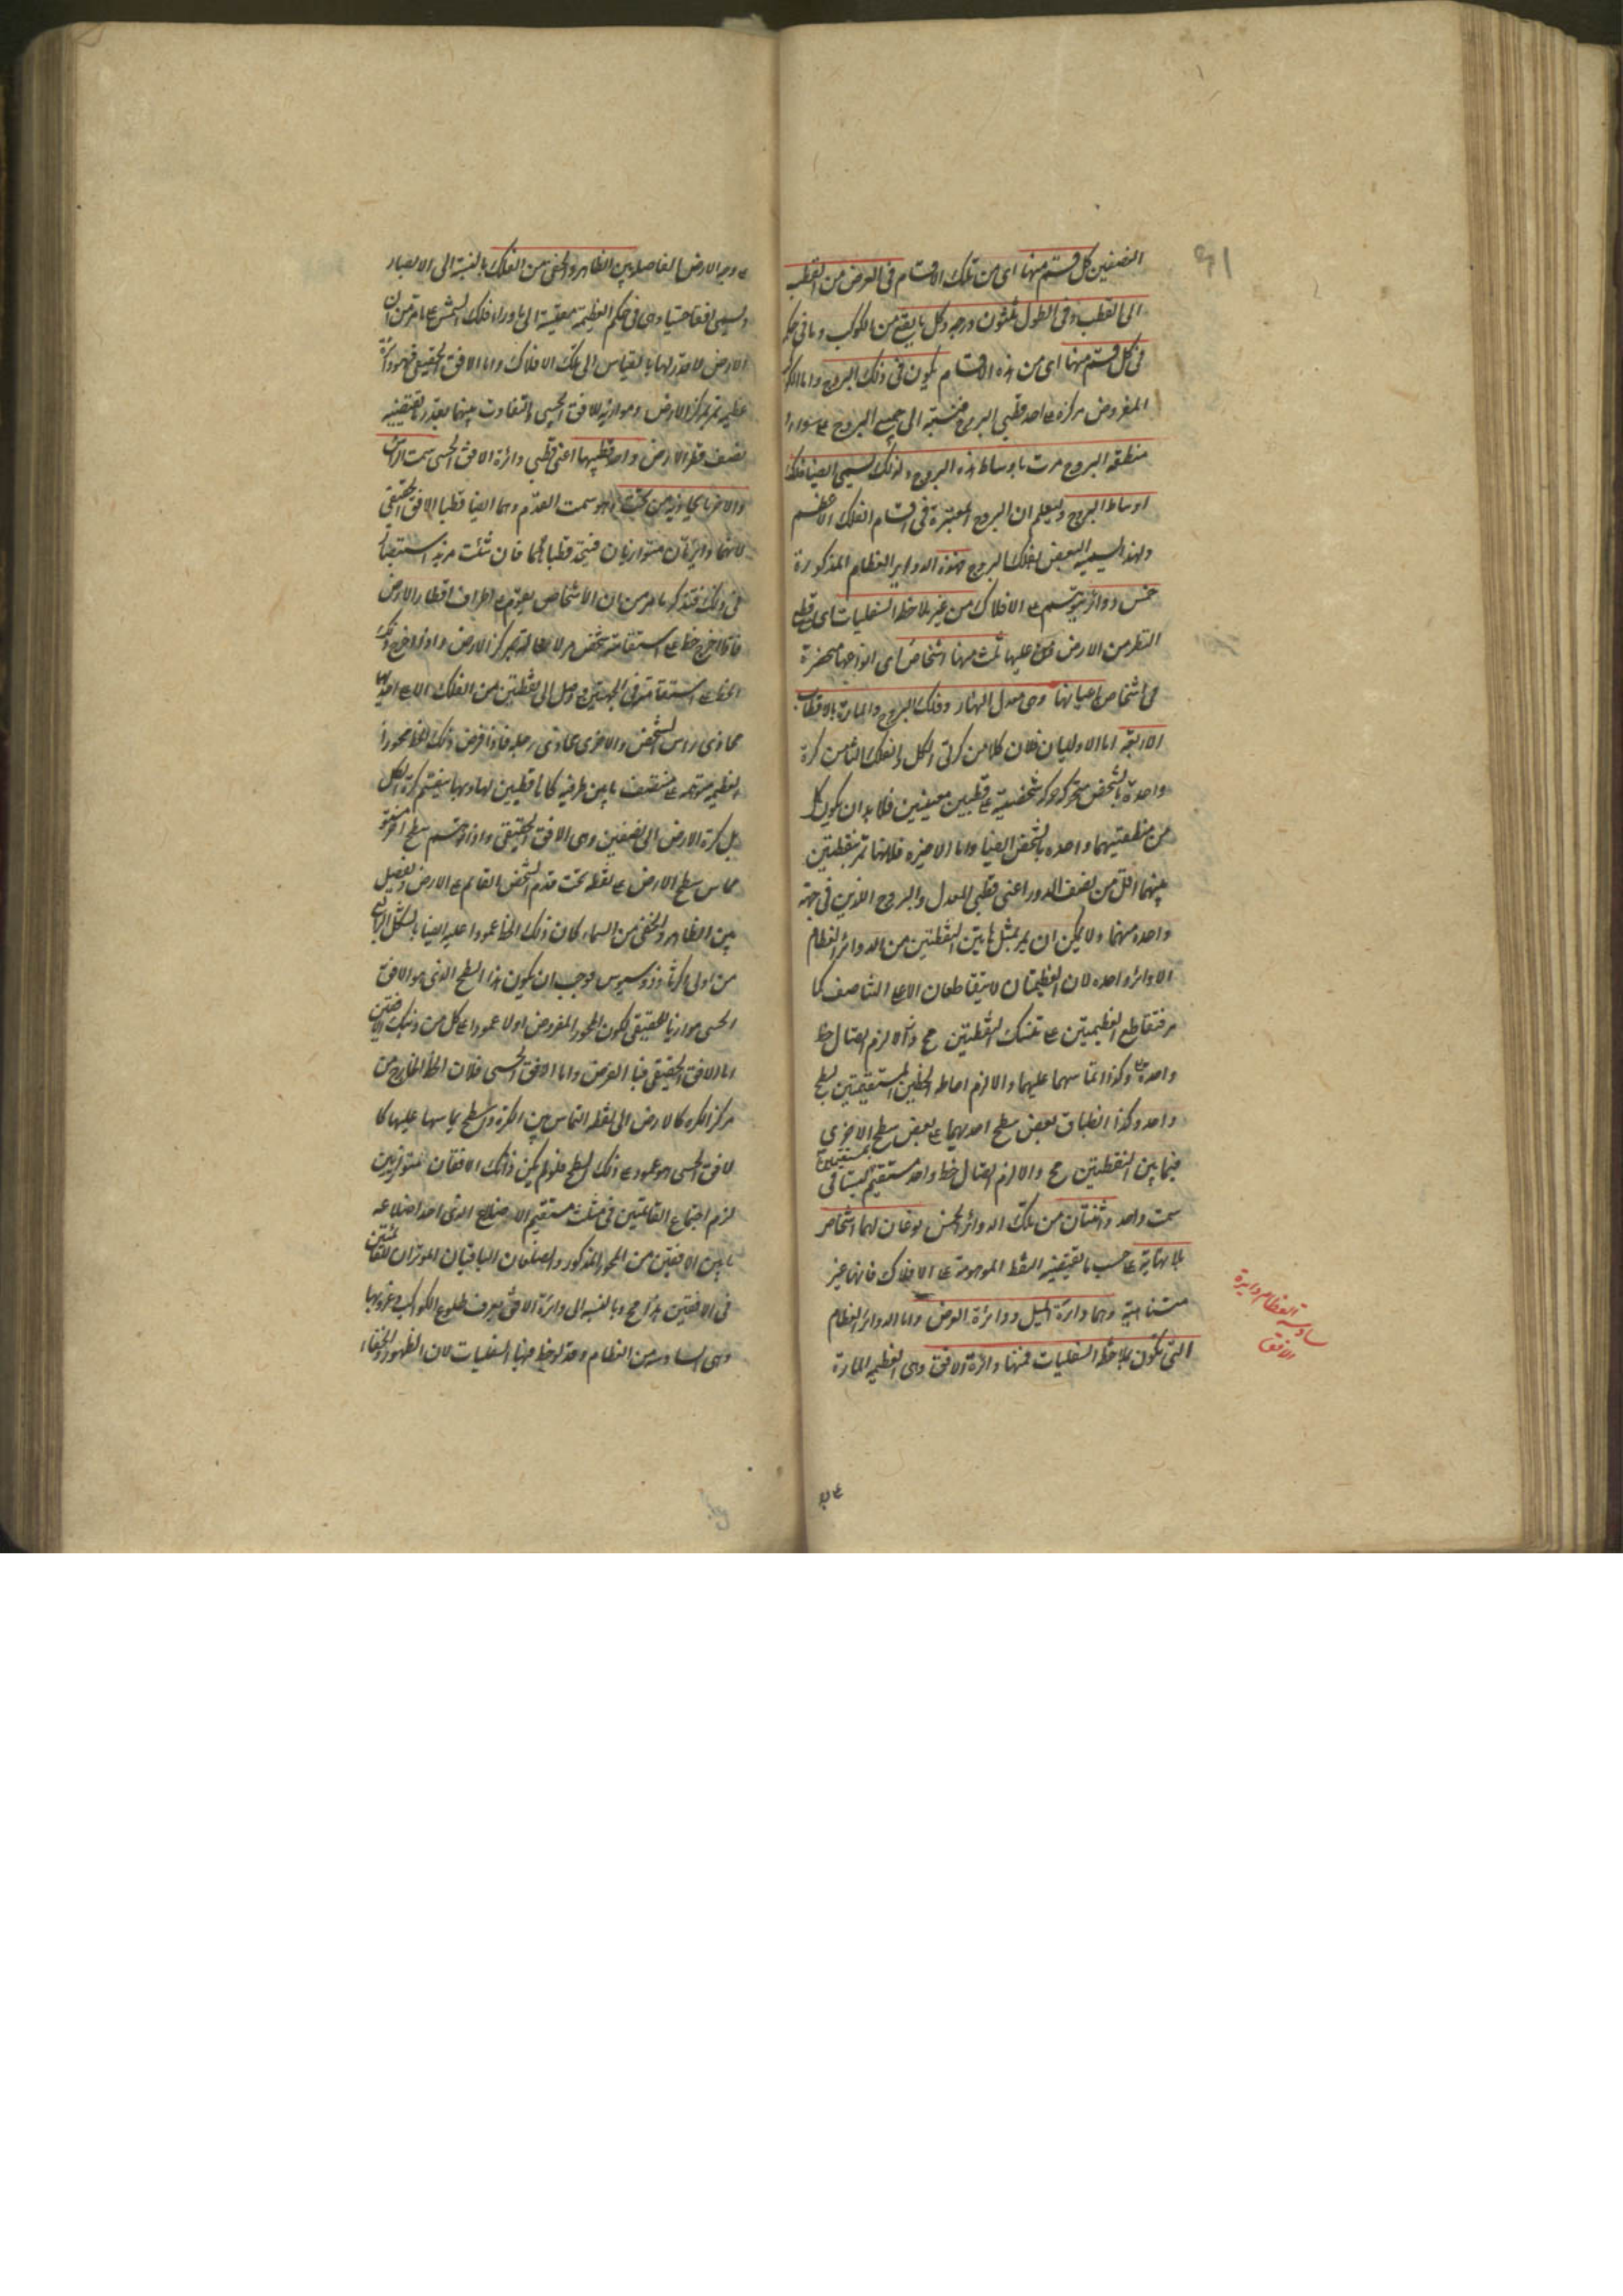 النصفين كل قسم منها اى من تلك الاقسام فى العرض من القطب
الى القطب وفى الطول ثلثون درجه وكل ما يقع من الكوكب وما فى حكمه
فى كل قسم منها اى من هذه الاقسام يكون فى ذلك البرج واما الكوكب
المفروض مركزه على احد قطبى البروج فنسبته الى جميع البروج على سواء
منطقه البروج مرت باوساط هذه البروج ولذلك تسمى ايضا فلك
اوساط البروج وليعلم ان البروج المعتبرة فى اقسام الفلك الاعظم
ولهذا يسميه البعض بفلك البروج فهذه الدواير العظام المذكورة
خمس دوائر ترتسم على الافلاك من غير ملاحظ السفليات اى قطع
النظر من الارض ومن عليها ثلث منها اشخاص اى انواعها منحصرة
فى اشخاص باعيانها وهى معدل النهار وفلك البروج والمارة بالاقطاب
الاربعه اما الاوليان فلان كلا من كرتى الكل والفلك الثامن كرة
واحدة بالشخص متحركه حركه شخصية على قطبين معينين فلا بد ان يكون كل
من منطقتيهما واحده بالشخص ايضا واما الاخيره فلانها تمر بنقطتين
بينهما اقل من نصف الدور اعنى قطبى المعدل والبروج اللذين فى جهة
واحده منهما ولا يمكن ان يمر بمثل هاتين النقطتين من الدوائر العظام
الا دائره واحده لان العظيمتان لا يتقاطعان الا على التناصف كما
مر فتقاطع العظيمتين على تينك النقطتين مح والا لزم اتصال خط
واحد وكذا تماسهما عليهما والا لزم احاطه الخطين المستقيمين بسطح
واحد وكذا انطباق بعض سطح احديهما على بعض سطح الاخرى
فيما بين النقطتين مح والا لزم اتصال خط واحد مستقيم بمستقيمين ليستا فى
سمت واحد واثنتان من تلك الدوائر الخمس نوعان لهما اشخاص
بلا نهاية على حسب ما تقتضيه النقط الموهومة على الافلاك فانها غير
متناهية وهما دائرة الميل ودائرة العرض واما الدوائر العظام
التى تكون بملاحظ السفليات فمنها دائرة الافق وهى العظيمه المارة
سادسة العظام دايرة
الافق
على وجه
على وجه الارض الفاصله بين الظاهر والخفى من الفلك بالنسبة الى الابصار
وتسمى افقا حسيا وهى فى حكم العظيمة بمقيسة الى ما وراء فلك الشمس على ما مر من ان
الارض لا قدر لها بالقياس الى تلك الافلاك واما الافق الحقيقى فهو دائرة
عظيمه تمر بمركز الارض وموازيه للافق الحسى والتفاوت بينهما بقدر ما يقتضيه
نصف قطر الارض واحد قطبيها اعنى قطبى دائرة الافق الحسى سمت الراس
والاخر ما يحاذيه من تحت وهو سمت القدم وهما ايضا قطبا الافق الحقيقى
لانهما دائرتان متوازيتان فيتحد قطباهما فان شئت مزيد استبصار
فى ذلك فتذكر ما مر من ان الاشخاص يقوم على اطراف اقطار الارض
فاذا اخرج خط على استقامة شخص مر لا محالة بمركز الارض واذا اخرج ذلك
الخط على استقامته فى الجهتين وصل الى نقطتين من الفلك الاعلى احديهما
محاذى راس الشخص والاخرى محاذى رجله فاذا فرض ذلك الخط محورا
لعظيمه متوهمه على منتصف ما بين طرفيه كانا قطبين لها وبها ينقسم كرة الكل
بل كرة الارض الى نصفين وهى الافق الحقيقى واذا توهم سطح اخر مستو
مماس سطح الارض على نقطه تحت قدم الشخص القائم على الارض ويفصل
بين الظاهر والخفى من السماء كان ذلك الخط عمودا عليه ايضا بالشكل الرابع
من اولى اكر ثاوذوسيوس فوجب ان يكون هذا السطح الذى هو الافق
الحسى موازيا للحقيقى لكون المحور المفروض اولا عمودا على كل من ذينك الافقين
اما الافق الحقيقى فبالفرض واما الافق الحسى فلان الخط الخارج من
مركز الكره كالارض الى نقطه التماس بين الكرة وسطح يماسها عليها كا
لافق الحسى هو عمود على ذلك السطح فلو لم يكن ذانك الافقان متوازيين
لزم اجتماع القائمتين فى مثلث مستقيم الاضلاع الذى احد اضلاعه
ما بين الافقين من المحور المذكور والضلعان الباقيان الموتران للقائمتين
فى الافقين هذا مح وبالنسبه الى دائرة الافق يعرف طلوع الكواكب وغروبها
وهى السادسه من العظام وقد لوحظ فيها السفليات لان الظهور والخفاء